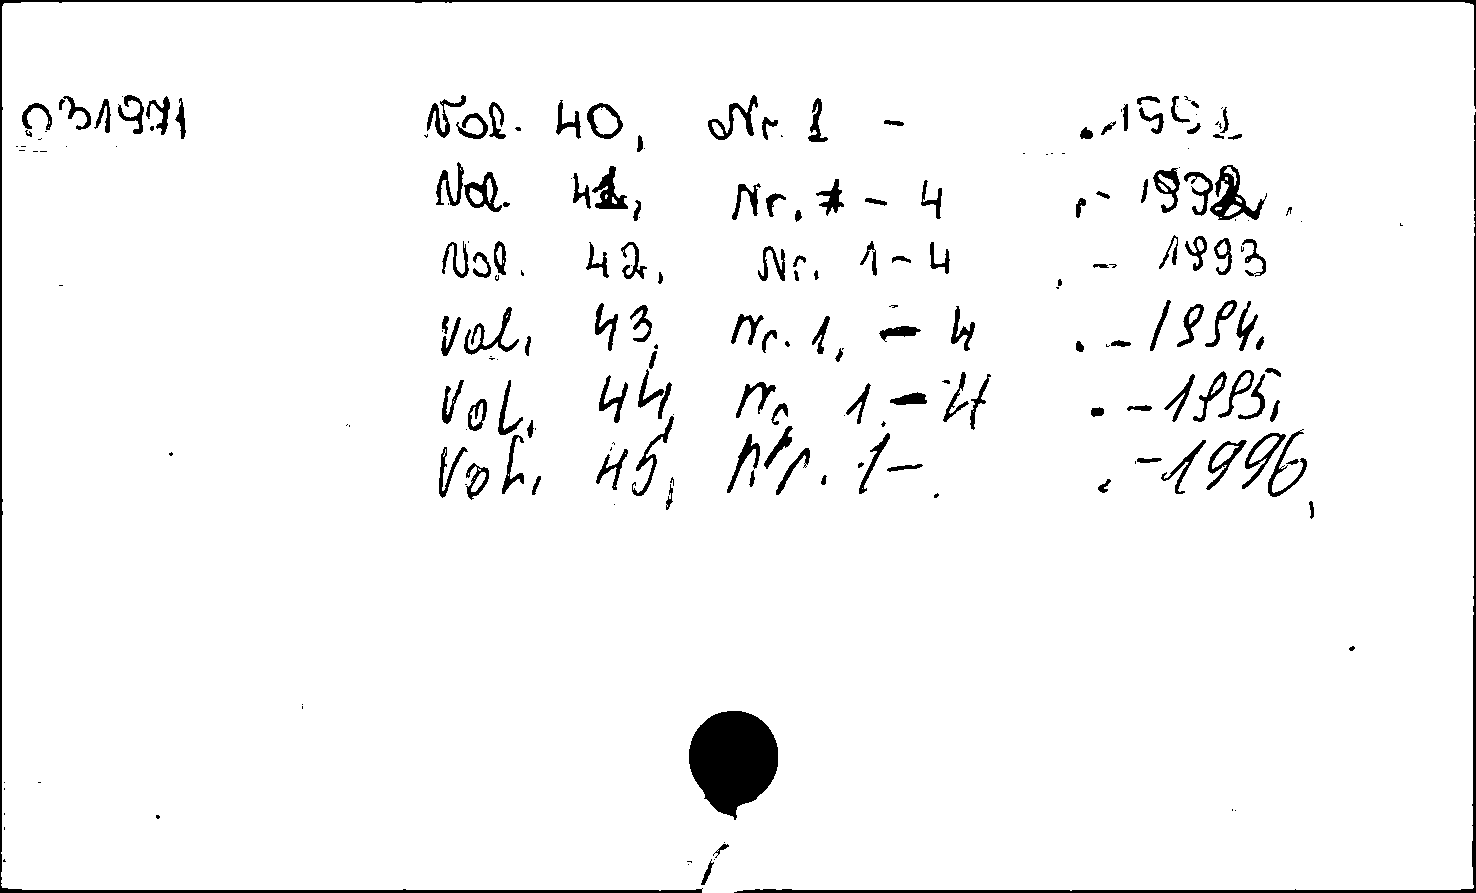 031971 Vol. 40, Nr. 1 - .-1991
Vol. 41, Nr. 1 - 4 .- 1992.
Vol. 42, Nr. 1-4 .- 1993
Vol. 43, Nr. 1. - 4 .- 1994.
Vol. 44, Nr. 1. - 4 .- 1995.
Vol. 45, Nr. 1- . .- 1996,